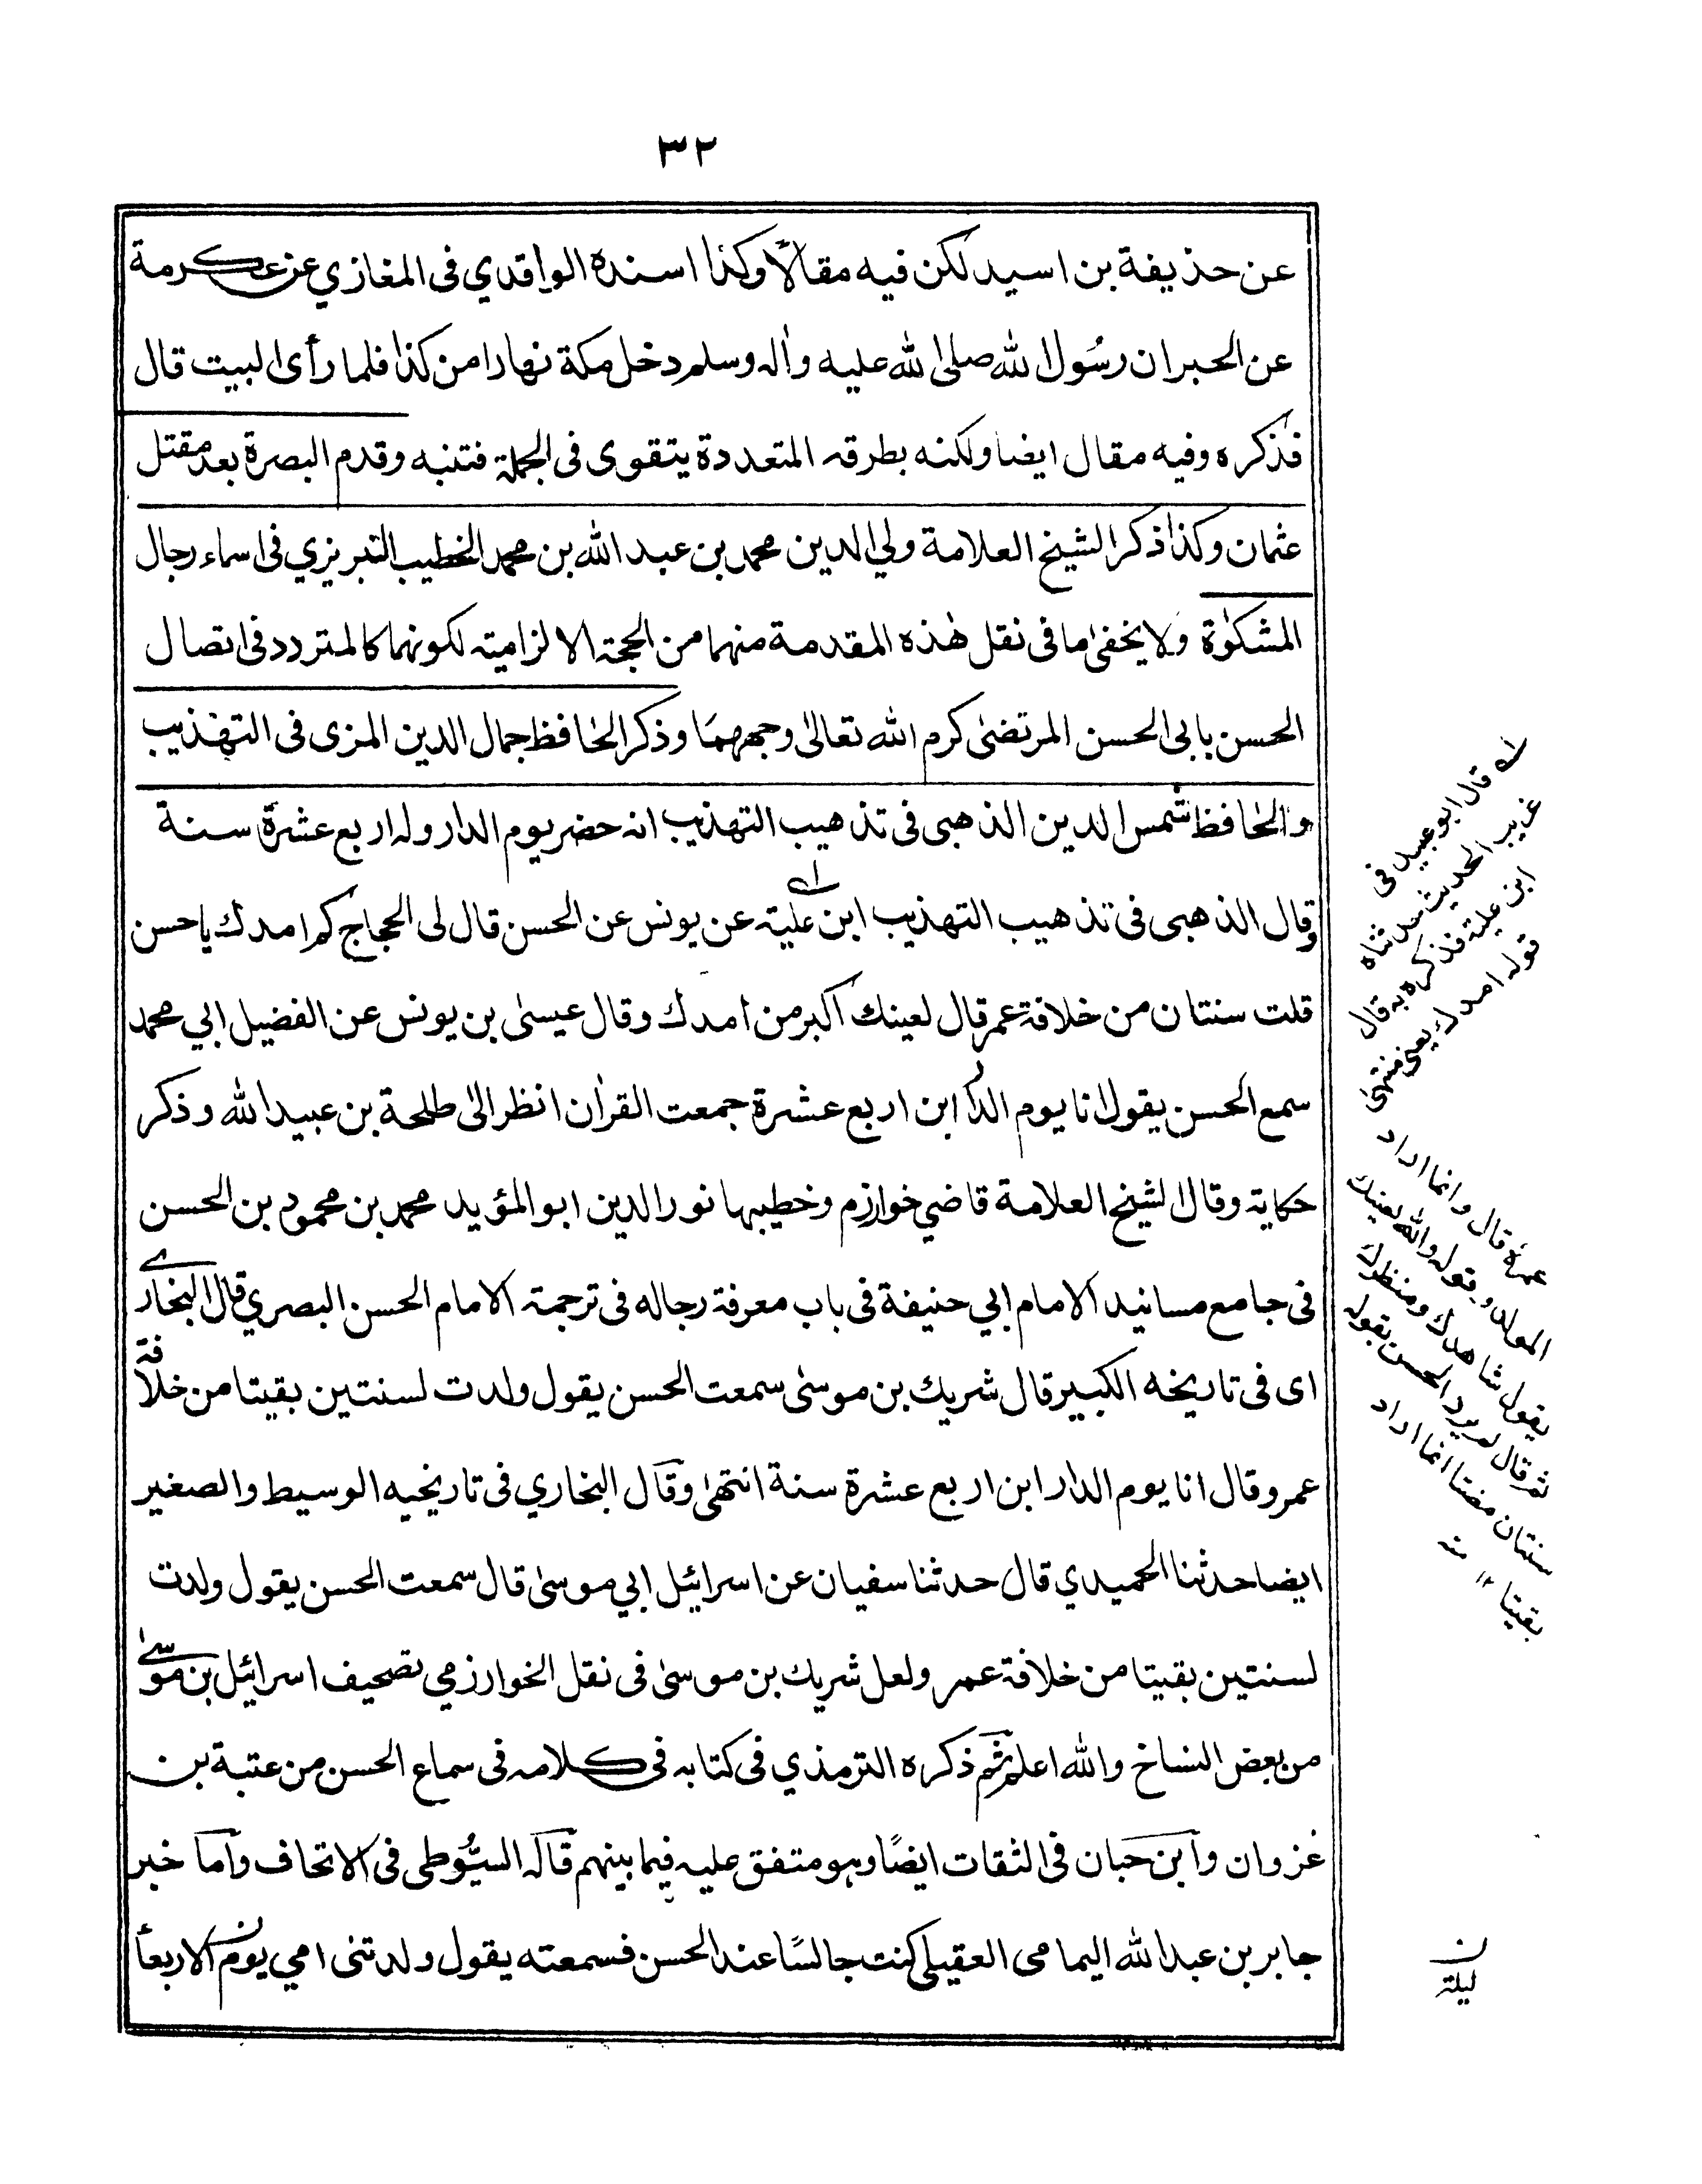 ٣٢
عن حذيفة بن اسيد لكن فيه مقالاً وكذا اسنده الواقدي فى المغازي عن عكرمة
عن الحبر ان رسُول الله صلى الله عليه واٰله وسلم دخل مكة نهارا من كذا فلما رأى البيت قال
فذكره وفيه مقال ايضا ولكنه بطرقه المتعددة يتقوى فى الجملة فتنبه وقدم البصرة بعد مقتل
عثمان وكذا ذكر الشيخ العلامة ولي الدين محمد بن عبد الله بن محمد الخطيب التبريزي فى اسماء رجال
المشكوٰة ولا يخفىٰ ما فى نقل هٰذه المقدمة منهما من الحجة الالزامية لكونهما كالمتردد فى اتصال
الحسن بابى الحسن المرتضىٰ كرم الله تعالىٰ وجههمَا وذكر الحافظ جمال الدين المزى فى التهذيب
والحافظ شمس الدين الذهبى فى تذهيب التهذيب انه حضر يوم الدار وله اربع عشرة سنة
وقال الذهبى فى تذهيب التهذيب ابن علية عن يونس عن الحسن قال لى الحجاج كم امدك يا حسن
قلت سنتان من خلافة عمر قال لعينك اكبر من امدك وقال عيسىٰ بن يونس عن الفضيل ابي محمد
سمع الحسن يقول انا يوم الدار ابن اربع عشرة جمعت القرآن انظر الىٰ طلحة بن عبيد الله وذكر
حكاية وقال الشيخ العلامة قاضي خوارزم وخطيبها نور الدين ابو المؤيد محمد بن محمود بن الحسن
فى جامع مسانيد الامام ابي حنيفة فى باب معرفة رجاله فى ترجمة الامام الحسن البصري قال البخاري
اى فى تاريخه الكبير قال شريك بن موسىٰ سمعت الحسن يقول ولدت لسنتين بقيتا من خلافة
عمر وقال انا يوم الدار ابن اربع عشرة سنة انتهىٰ وقال البخاري فى تاريخيه الوسيط والصغير
ايضا حدثنا الحميدي قال حدثنا سفيان عن اسرائيل ابي موسىٰ قال سمعت الحسن يقول ولدت
لسنتين بقيتا من خلافة عمر ولعل شريك بن موسىٰ فى نقل الخوارزمي تصحيف اسرائيل بن موسىٰ
من بعض النساخ والله اعلم ثم ذكره الترمذي فى كتابه فى كلامه فى سماع الحسن من عتبة بن
غزوان وابن حبان فى الثقات ايضًا وهو متفق عليه فيما بينهم قاله السيُّوطى فى الاتحاف واما خبر
جابر بن عبد الله اليمامى العقيلى كنت جالسًا عند الحسن فسمعته يقول ولدتنى امي يوم الاربعاء
قال ابو عبيد فى
غريب الحديث حدثناه
ابن علية فذكره به قال
قوله امدك يعنى منتهىٰ
عمره قال وانما اراد
المولد وقوله والله لعينك
يقول شاهدك ومنظرك
ثم قال لم يرد الحسن بقوله
سنتان مضتا انما اراد
بقيتا ١٢ منه
ن
ليلة